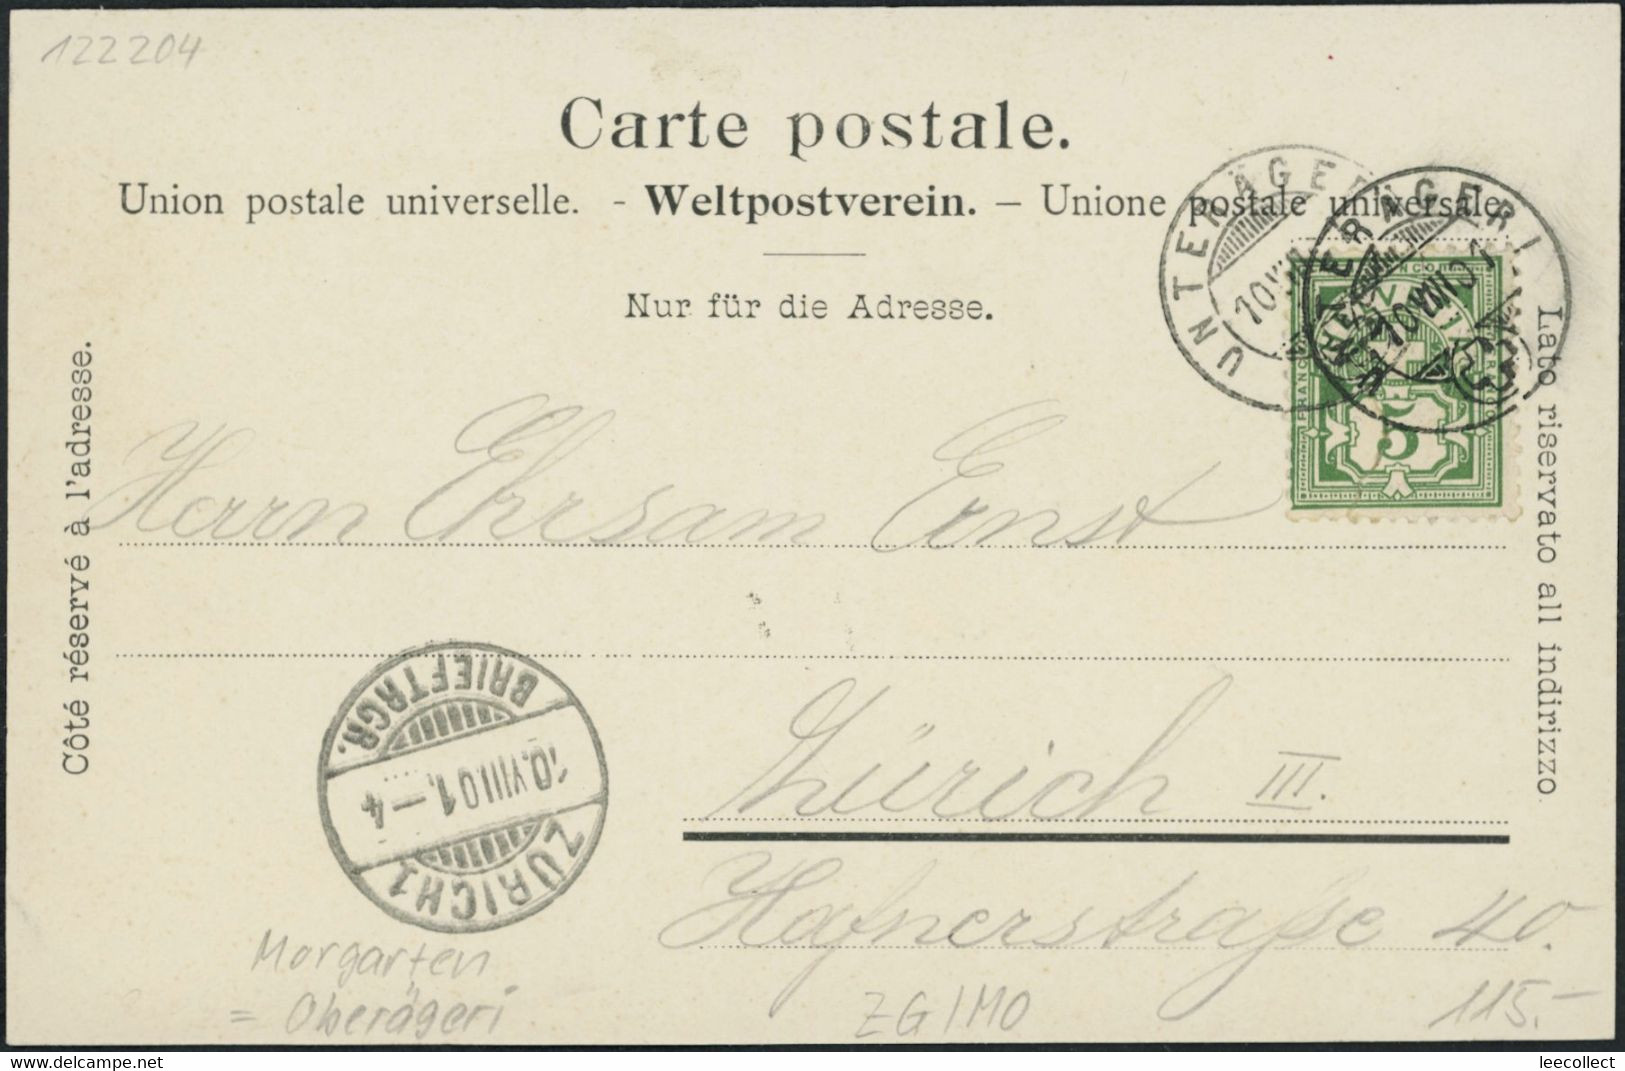 122204
Carte postale.
Union postale universelle. - Weltpostverein. – Unione postale universale.
Nur für die Adresse.
Côté réservé à l'adresse.
Lato riservato all indirizzo.
UNTERÄGERI
10 VIII
UNTERÄGERI
10 VIII 01
FRANCO
5
Herrn Ehrsam Ernst
Zürich III.
Hafnerstraße 40.
BRIEFTRGR.
10.VIII.01.–4
ZÜRICH 1
Morgarten
= Oberägeri
ZG/MO
115.-
www.delcampe.net
leecollect